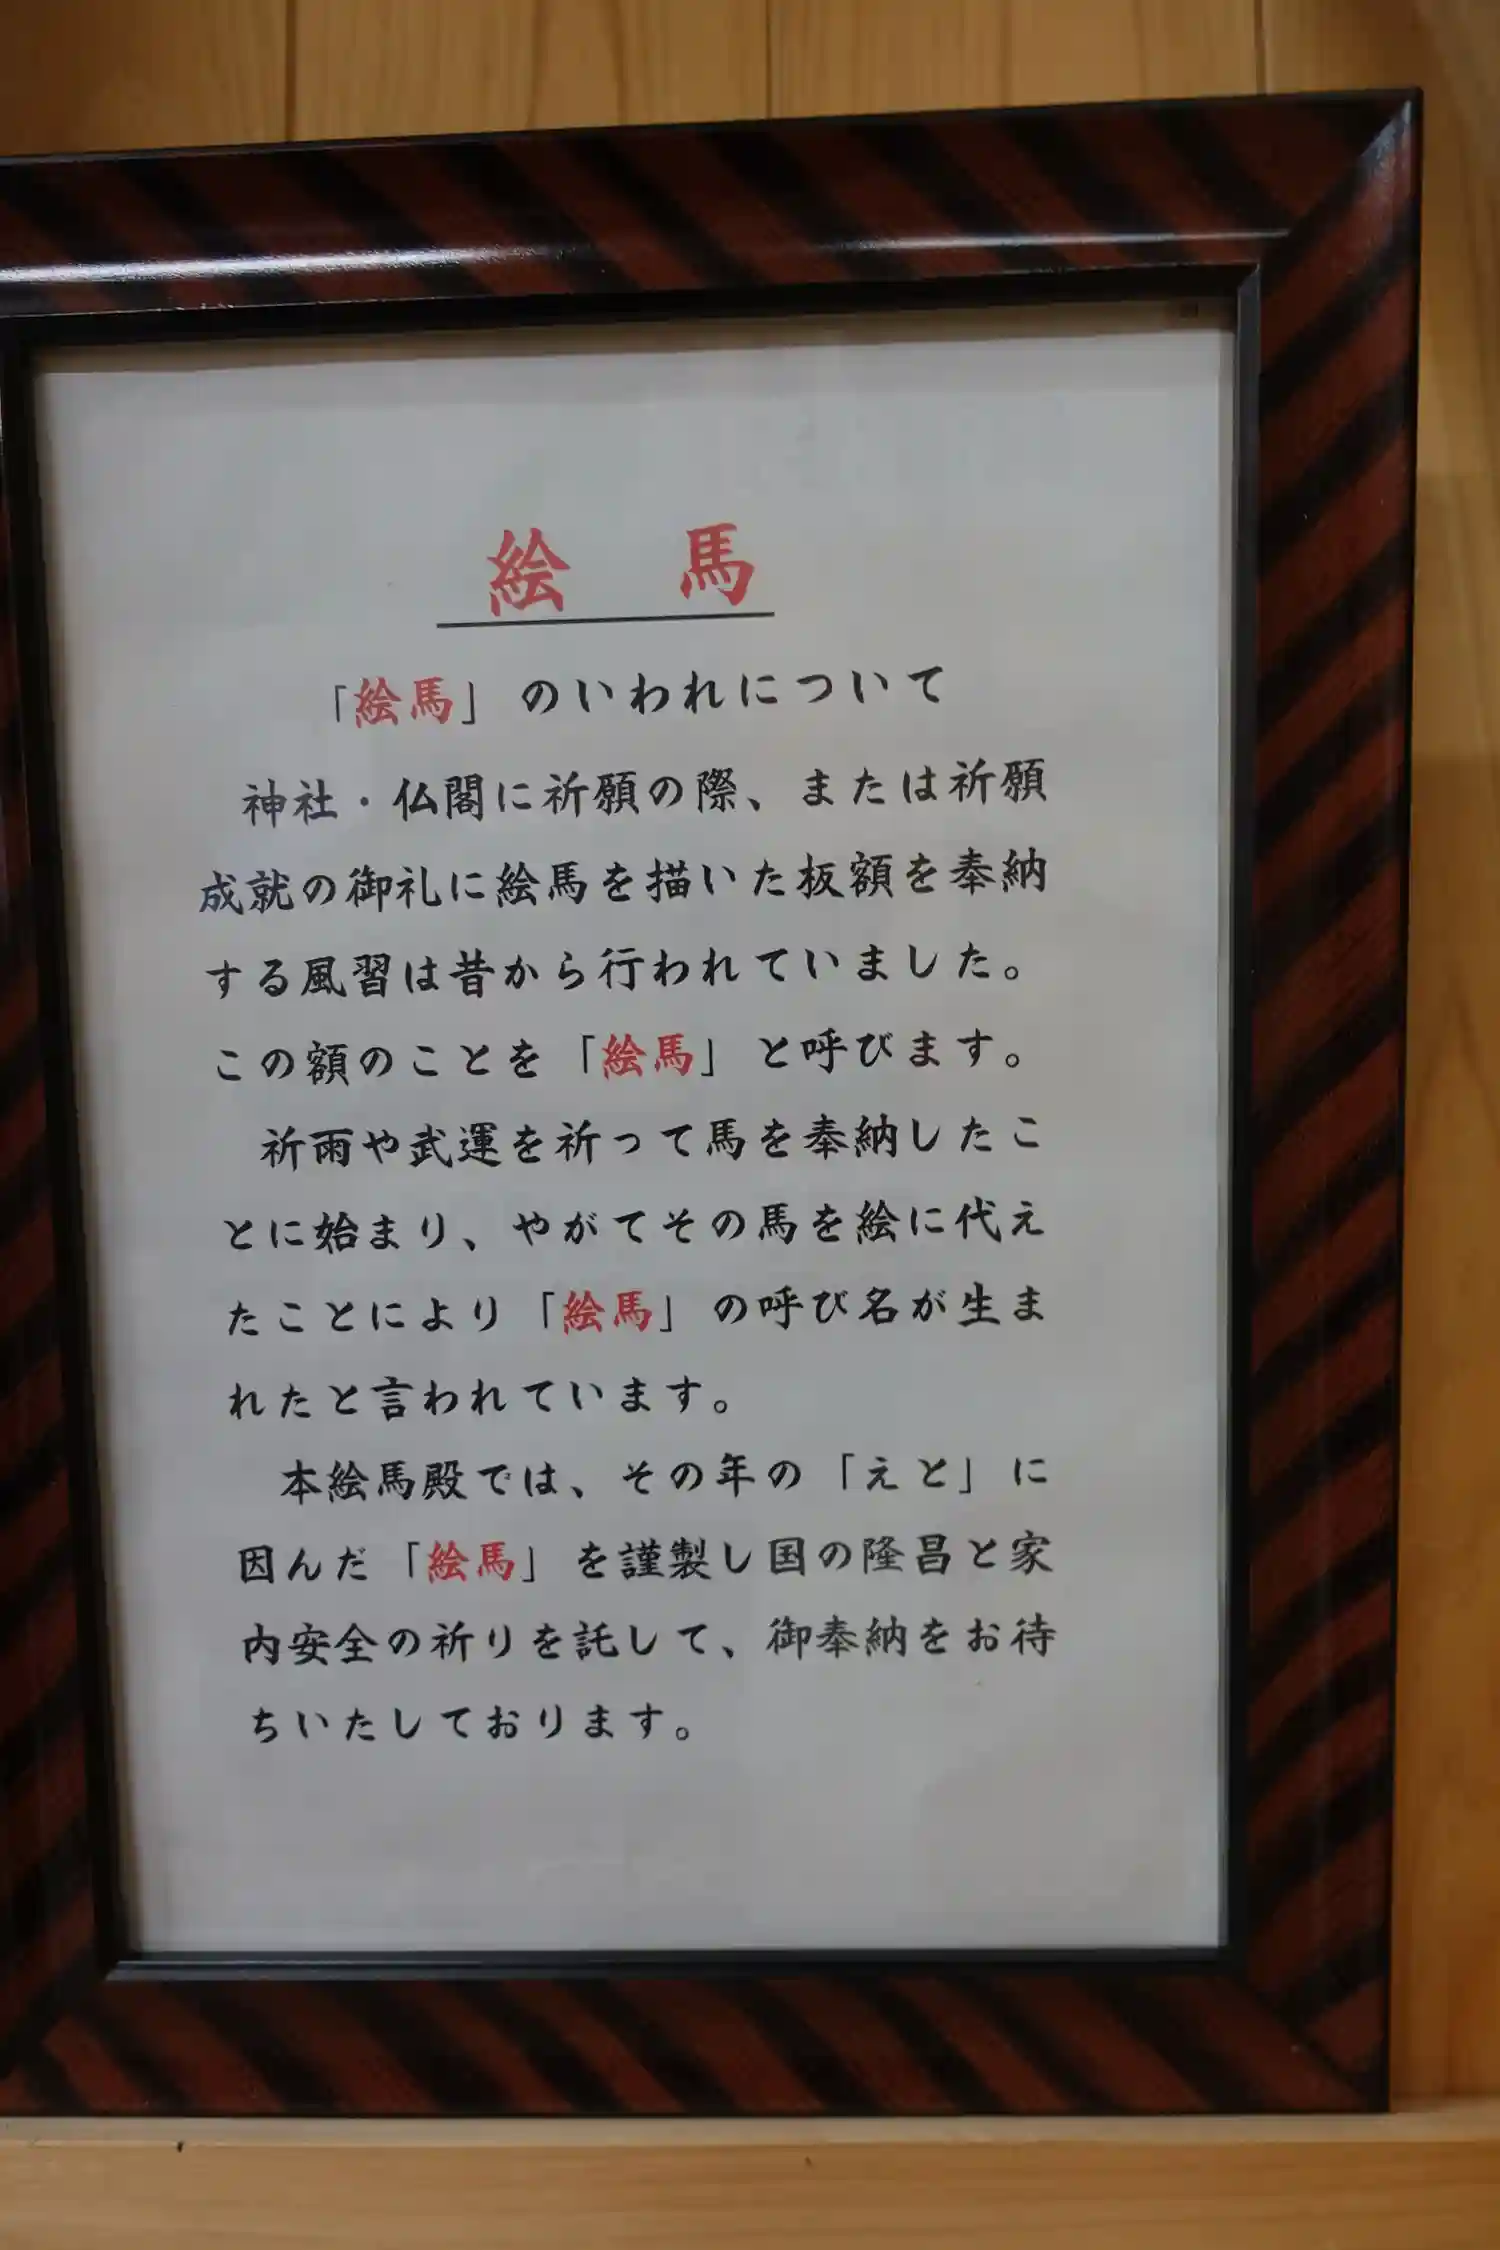 絵 馬
「絵馬」のいわれについて
神社・仏閣に祈願の際、または祈願
成就の御礼に絵馬を描いた板額を奉納
する風習は昔から行われていました。
この額のことを「絵馬」と呼びます。
祈雨や武運を祈って馬を奉納したこ
とに始まり、やがてその馬を絵に代え
たことにより「絵馬」の呼び名が生ま
れたと言われています。
本絵馬殿では、その年の「えと」に
因んだ「絵馬」を謹製し国の隆昌と家
内安全の祈りを託して、御奉納をお待
ちいたしております。